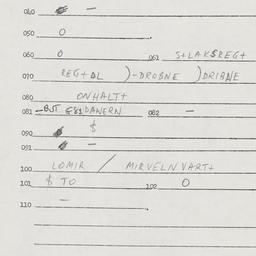 040 —
050 O
060 O 061 S+LAKSREG+
070 REG+DL )-DROBNE )DRIBNE
080 ONHALT+
081 -BUT G81DANERN 082 —
090 $
091 —
100 LOMIR / MIRVELN VART+
101 $ TO 102 O
110 —